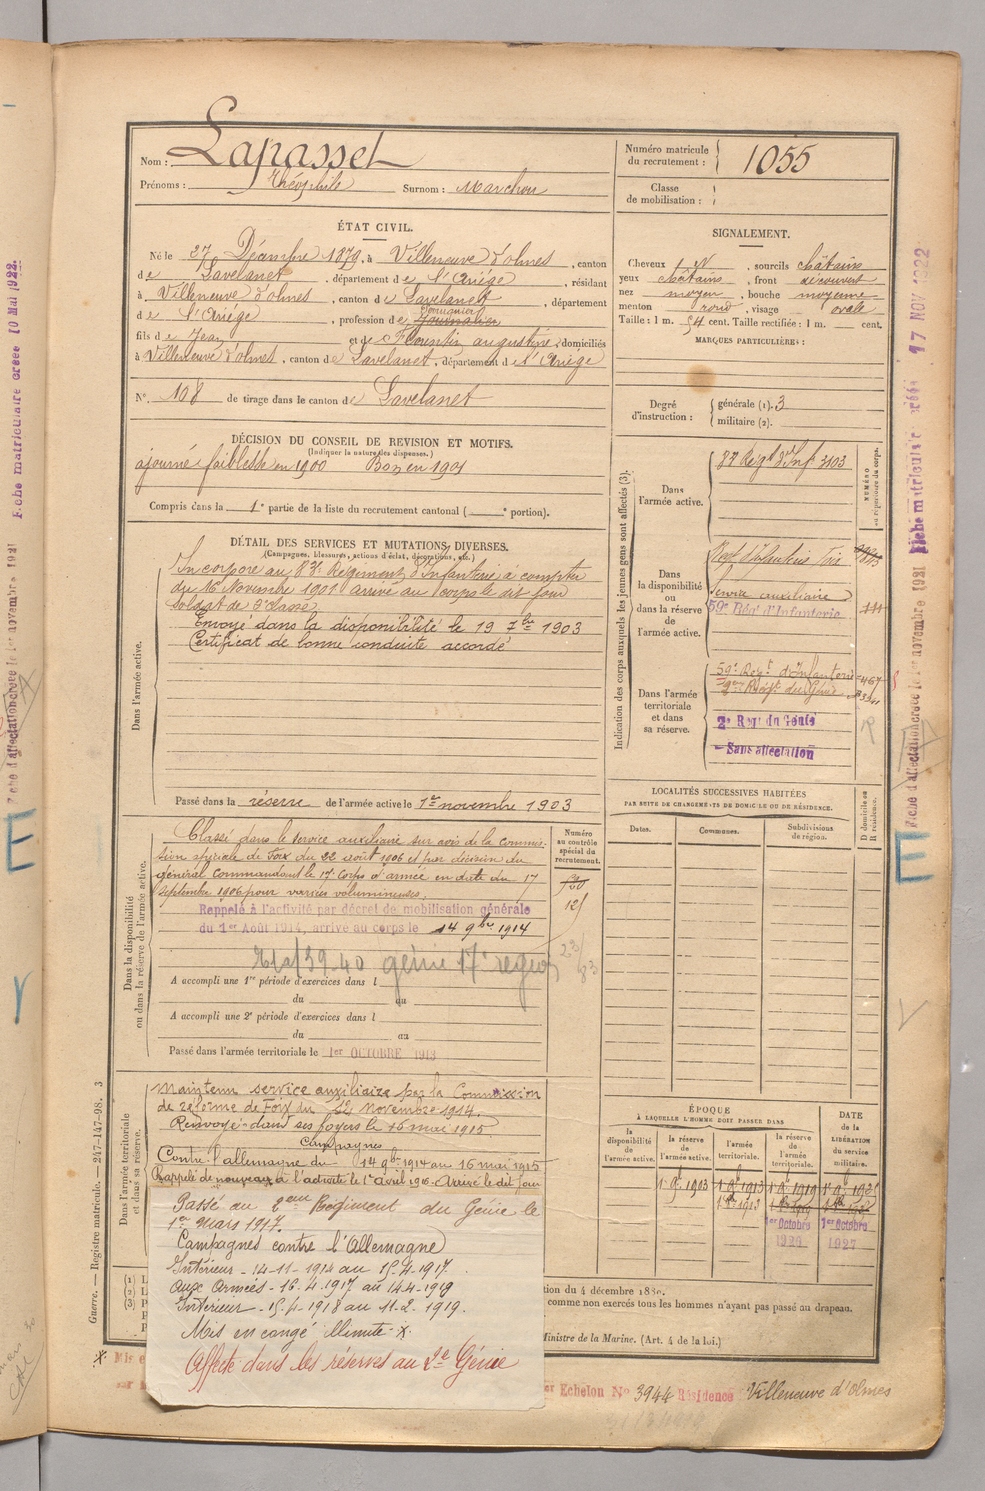 Nom : Lapasset
Prénoms : Théophile Surnom : Marchou
Numéro matricule du recrutement : 1055
Classe de mobilisation :
ÉTAT CIVIL.
Né le 27 Décembre 1879, à Villeneuve d'olmes, canton
de Lavelanet, département de l'Ariège, résidant
à Villeneuve d'olmes, canton de Lavelanet, département
de l'Ariège, profession de Journalier
fils de Jean et de Florentin augustine, domiciliés
à Villeneuve d'olmes, canton de Lavelanet, département de l'Ariège
N° 108 de tirage dans le canton de Lavelanet
SIGNALEMENT.
Cheveux N, sourcils châtains
yeux châtains, front découvert
nez moyen, bouche moyenne
menton rond, visage ovale
Taille : 1 m. 54 cent. Taille rectifiée : 1 m. cent.
MARQUES PARTICULIÈRES :
Degré d'instruction : générale (1). 3
militaire (2).
DÉCISION DU CONSEIL DE REVISION ET MOTIFS.
(Indiquer la nature des dispenses.)
ajourné faiblesse en 1900 Bon en 1901
Compris dans la 1e partie de la liste du recrutement cantonal ( e portion).
DÉTAIL DES SERVICES ET MUTATIONS DIVERSES.
(Campagnes, blessures, actions d'éclat, décorations, etc.)
Dans l'armée active.
Incorporé au 87e Régiment d'Infanterie à compter
du 16 Novembre 1901 arrivé au corps le dit jour
soldat de 2e classe
Envoyé dans la disponibilité le 19 7bre 1903
Certificat de bonne conduite accordé
Passé dans la réserve de l'armée active le 1er novembre 1903
Indication des corps auxquels les jeunes gens sont affectés (3).
NUMÉRO au répertoire du corps.
Dans l'armée active.
87 Régt d'Inf 3103
Dans la disponibilité ou dans la réserve de l'armée active.
Service auxiliaire
59e Rég d'Infanterie 111
Dans l'armée territoriale et dans sa réserve.
59e Régt d'Infanterie 467
2eme Régt du Génie
2e Regt du Génie
Sans affectation
Dans la disponibilité ou dans la réserve de l'armée active.
Classé dans le service auxiliaire sur avis de la Commis-
sion spéciale de Foix du 22 août 1906 et par décision du
général Commandant le 17e Corps d'armée en date du 17
septembre 1906 pour varices volumineuses
Rappelé à l'activité par décret de mobilisation générale
du 1er Août 1914, arrivé au corps le 14 9bre 1914
39-40 génie 17e region
A accompli une 1re période d'exercices dans l
du au
A accompli une 2e période d'exercices dans l
du au
Passé dans l'armée territoriale le 1er OCTOBRE 1913
Numéro au contrôle spécial du recrutement.
LOCALITÉS SUCCESSIVES HABITÉES
PAR SUITE DE CHANGEMENTS DE DOMICILE OU DE RÉSIDENCE.
Dates. Communes. Subdivisions de région. D domicile ou R résidence.
Dans l'armée territoriale et dans sa réserve.
Maintenu service auxiliaire par la Commission
de reforme de Foix du 12 novembre 1914.
Renvoyé dans ses foyers le 16 mai 1915.
Campagnes
Contre l'allemagne du 14 9bre 1914 au 16 mai 1915
Rappelé de nouveau à l'activité le 1er avril 1916. Arrivé le dit jour
Passé au 2eme Régiment du Génie le
1er Mars 1917.
Campagnes contre l'Allemagne
Intérieur - 14-11-1914 au 15-4-1917
aux Armées - 16.4.1917 au 14-4-1919
Intérieur - 15-4-1918 au 11.2.1919.
Mis en congé illimité
Affecté dans les réserves au 2e Génie
ÉPOQUE
À LAQUELLE L'HOMME DOIT PASSER DANS
la disponibilité de l'armée active. la réserve de l'armée active. l'armée territoriale. la réserve de l'armée territoriale.
DATE de la LIBÉRATION du service militaire.
1er Octobre 1er Octobre
1927
comme non exercés tous les hommes n'ayant pas passé au drapeau.
Ministre de la Marine. (Art. 4 de la loi.)
Echelon No 3944 Résidence Villeneuve d'Olmes
Guerre. — Registre matricule. — 247-147-98. 3
Fiche matriculaire créée 10 Mai 1922.
17 NOV 1922
Fiche d'affectation créée le 1er novembre 1921
E
E